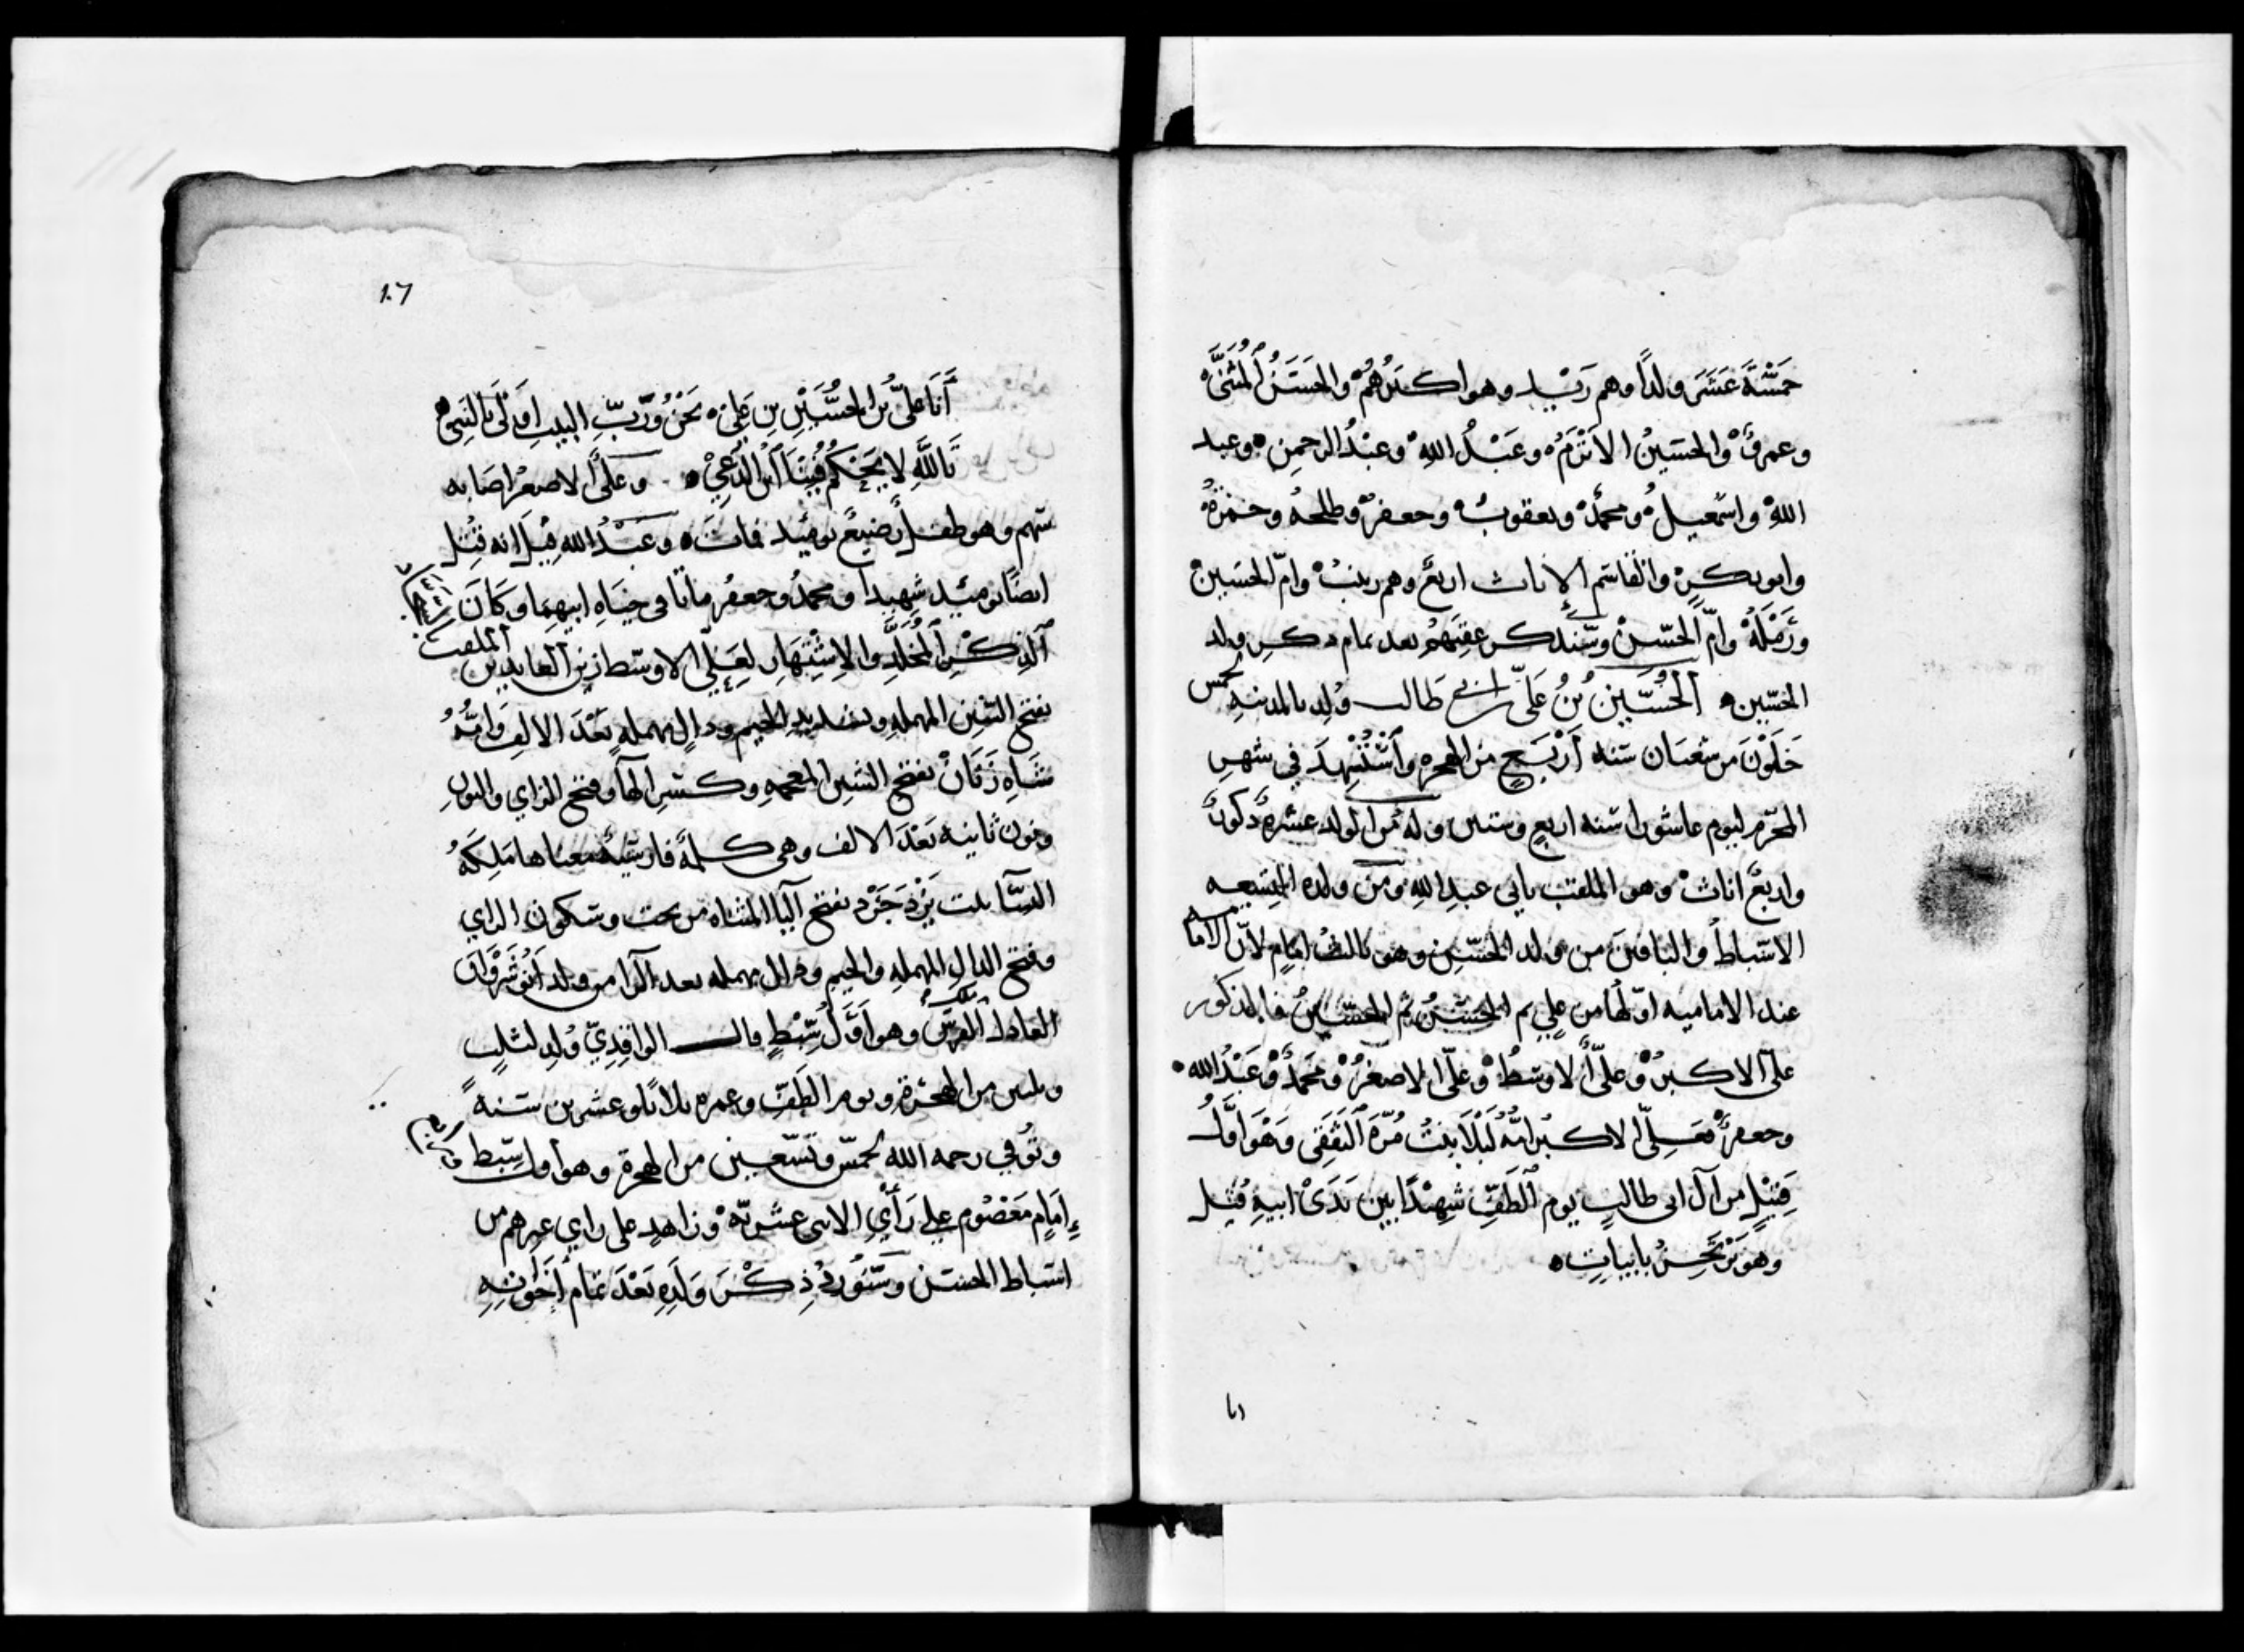 خَمْسَةَ عَشَرَ ولدًا وهم زَيْد وهو اكبَرُهُمْ والحَسَنُ المُثَنَّى
وعمرو والحسَينُ الاَثْرَمُ وعَبْدُ اللهِ وعَبْدُ الرحمنِ وعبد
اللهِ واسْمعيلُ ومحمدٌ ويعقوبُ وجعفرٌ وطلحةُ وحمزةُ
وابو بكرٍ والقاسم الاناث اربعٌ وهم زينبُ وامّ الحسَين
ورَمْلَةُ وامّ الحَسَن وسَنذكر عقِبَهُم بعد تمام ذكرِ ولد
الحسَين الحُسَين بنُ عَلىّ بن ابى طَالب وُلِد بالمدينةِ لخمس
خَلَوْنَ من شعبَان سَنه اَرْبَعٍ من الهجره واسْتُشْهِدَ في شهرِ
المحرّم ليوم عاشورا سَنه اربعٍ وستين وله مِن الولد عشرة ذكورٌ
واربعٌ اناثٌ وهو الملقب بابى عبدِ اللهِ ومن ولده التسعه
الاسْباط والباقين من ولد الحسَن وهو ثالث امَامٍ لانّ الاِمَام
عند الاماميه اوّلها من علي ثم الحسَنُ ثم الحسَينُ فالذكور
علىّ الاكبرُ وعلىّ الاوسَطُ وعلىّ الاصغرُ ومحمدٌ وعَبْدُ الله
وجعفرٌ فعَلِىّ الاكبرُ امّهُ لَيْلَا بنتُ مُرّةَ الثقَفِى وَهْوَ اوّلُ
قَتِيْلٍ من آل ابى طالبٍ يوم الطَفِّ شهِيْدًا بين يَدَىْ ابيهِ قُتِل
وهْوَ يَرْتَجِزُ بابياتٍ
١٠٦
أَنَا عَلىُّ بن الحُسَيْنِ بنِ عَلِىْ نَحْنُ وَرَبِّ البيتِ اَوْلَى بالنَبِىْ
تَاللَّهِ لا يَحْكُمُ فِيْنَا ابنُ الدَعِيْ وعَلىُّ الاصغرُ اصَابه
سَهم وهو طفلٌ رَضِيعٌ يومَئِذٍ فماتَ وعَبْدُ الله قِيْلَ انه قُتِل
ايضًا يومَئذٍ شهِيدًا ومحمدٌ وجعفرُ ماتا في حيَاةِ ابيهِمَا وكَانَ
الذِكْرُ المُخَلَّدِ والاِشْتِهَارِ لِعَلىّ الاوسَط زين العابدين الملقب
بفتح السّين المهملهِ وتشديد الجيم ودالٍ مهملةٍ بَعْدَ الالِف وامُّهُ
شَاهِ زَنَانْ بفتح الشينِ المعجمهِ وكسرِ الهآ وفتح الزاي والنونِ
ونون ثانيه بَعْدَ الالف وهى كلمةٌ فارسيّة معناها مَلِكَةُ
النسَآ بنت يَزْدَجَرْد بفتح اليآ المثناه من تحت وسكون الزاي
وفتح الدال المهملهِ والجيم ودال مهمله بعد الرا من ولد اَنُوشَرْوَان
العادل ملك الفرس وهو اَوَّلُ سِبْطٍ قال الواقِدِيّ وُلِد لثلاثٍ
وثلثين من الهجرَة ويوم الطَفِّ وعمره ثلاثًا وعشرين سَنةً
وتُوُفي رحمه الله لخمسٍ وتسْعين من الهجرة وهو اول سِبْط
اِمَامٍ مَعْصُومٍ على رَأْيِ الاثنى عشريّة وزاهدٍ على راي غيرهم من
اسباط الحسَن وسَنُورِدُ ذِكْرَ وَلَدِهِ بَعْدَ تمام اَخَوَاتِهِ